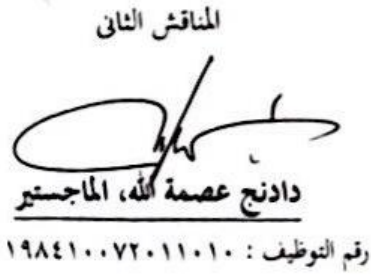 المناقش الثانى
دادنج عصمة الله، الماجستير
رقم التوظيف : ١٩٨٤١٠٠٧٢٠١١٠١٠